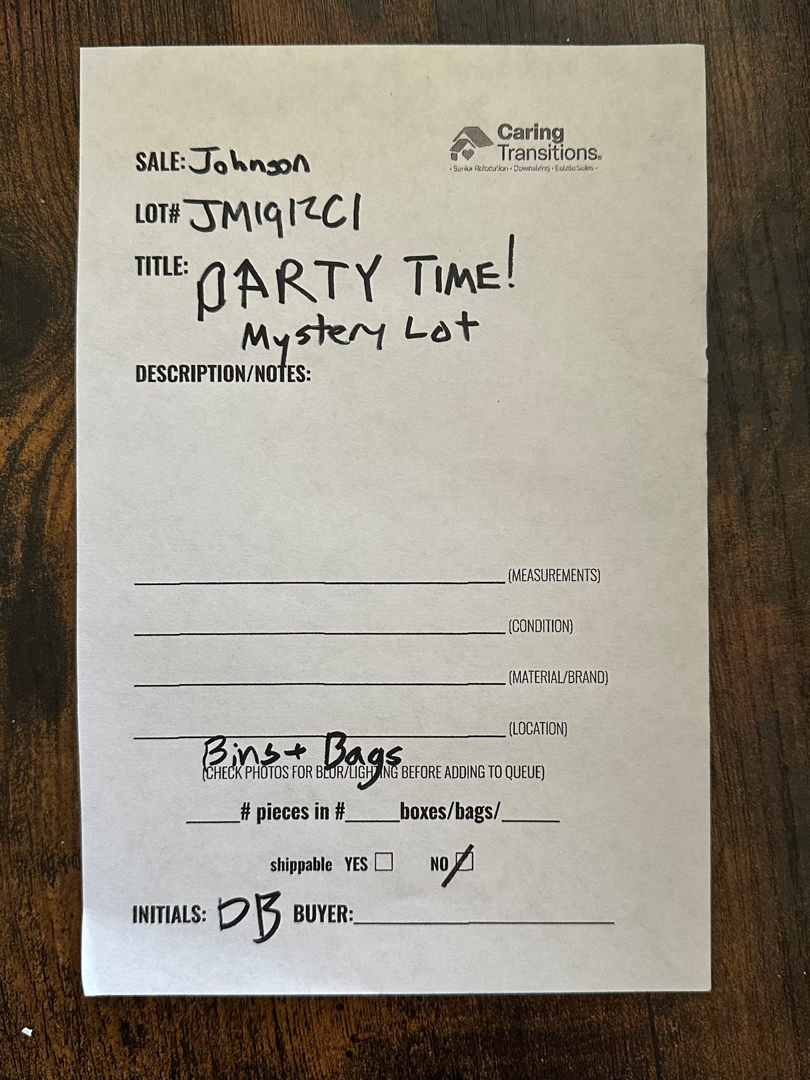 Caring
Transitions®
• Senior Relocation • Downsizing • Estate Sales •
SALE: Johnson
LOT# JM1912C1
TITLE: PARTY TIME!
Mystery Lot
DESCRIPTION/NOTES:
(MEASUREMENTS)
(CONDITION)
(MATERIAL/BRAND)
(LOCATION)
Bins + Bags
(CHECK PHOTOS FOR BLUR/LIGHTING BEFORE ADDING TO QUEUE)
_____# pieces in #_____boxes/bags/_____
shippable YES ☐ NO ☑
INITIALS: DB BUYER: